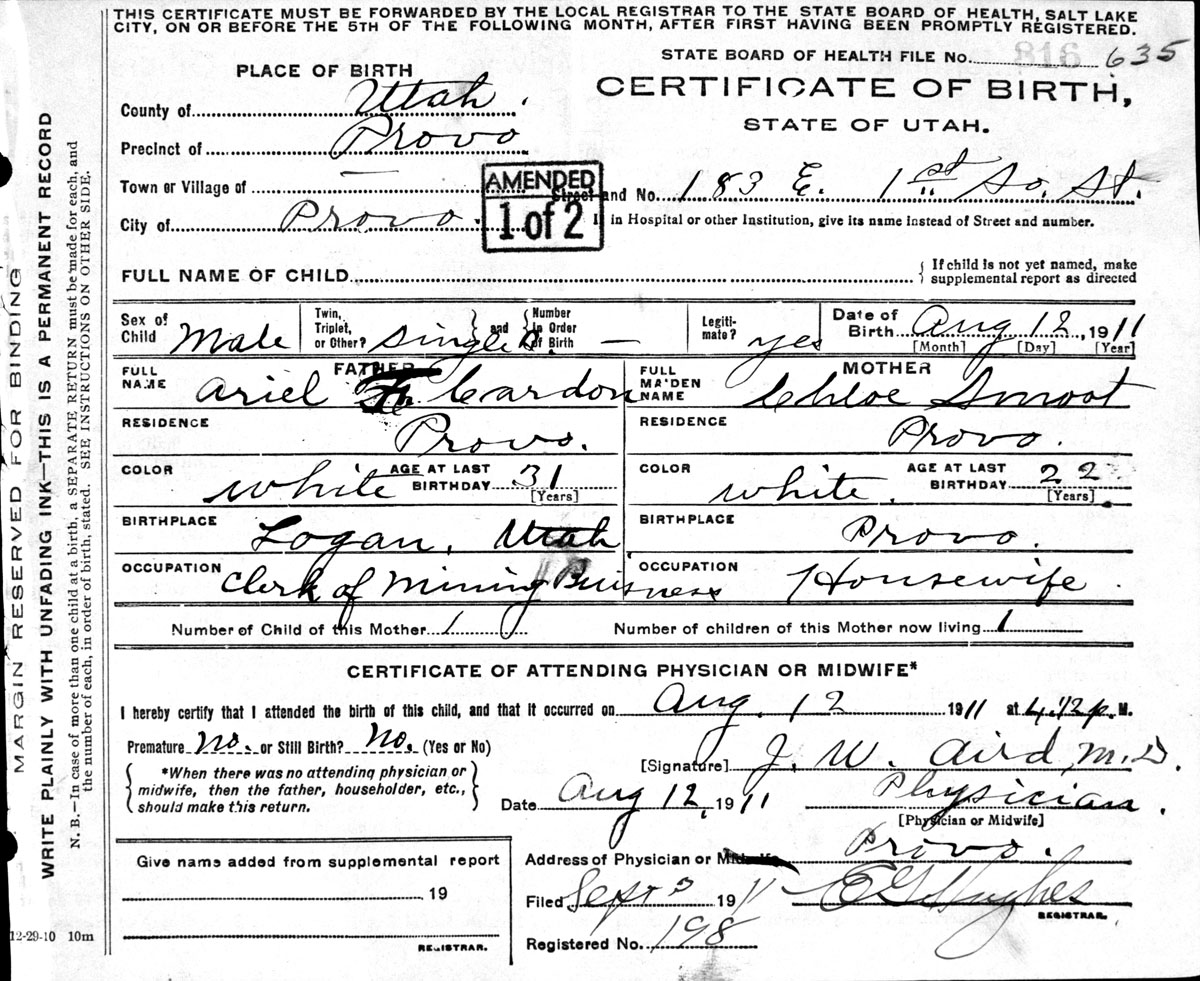 THIS CERTIFICATE MUST BE FORWARDED BY THE LOCAL REGISTRAR TO THE STATE BOARD OF HEALTH, SALT LAKE
CITY, ON OR BEFORE THE 5TH OF THE FOLLOWING MONTH, AFTER FIRST HAVING BEEN PROMPTLY REGISTERED.
STATE BOARD OF HEALTH FILE No. 816 635
PLACE OF BIRTH
CERTIFICATE OF BIRTH,
STATE OF UTAH.
County of Utah.
Precinct of Provo
Town or Village of —
AMENDED
1 of 2
Street and No. 183 E. 1st So. St.
City of Provo.
in Hospital or other Institution, give its name instead of Street and number.
FULL NAME OF CHILD
{ If child is not yet named, make
supplemental report as directed
Sex of Child Male
Twin, Triplet, or Other? Single } and { Number in Order of Birth —
Legitimate? yes
Date of Birth Aug 12, 1911
[Month] [Day] [Year]
FATHER
MOTHER
FULL NAME Ariel F. Cardon
FULL MAIDEN NAME Chloe Smoot
RESIDENCE Provo.
RESIDENCE Provo.
COLOR white AGE AT LAST BIRTHDAY 31 [Years]
COLOR white. AGE AT LAST BIRTHDAY 22 [Years]
BIRTHPLACE Logan, Utah
BIRTHPLACE Provo.
OCCUPATION Clerk of Mining Buisness
OCCUPATION Housewife
Number of Child of this Mother 1
Number of children of this Mother now living 1
CERTIFICATE OF ATTENDING PHYSICIAN OR MIDWIFE*
I hereby certify that I attended the birth of this child, and that it occurred on Aug. 12 1911 at 4.12 p. M.
Premature No. or Still Birth? No. (Yes or No)
{ *When there was no attending physician or
midwife, then the father, householder, etc.,
should make this return. }
[Signature] J. W. Aird, M.D.
Date Aug 12, 1911
Physician.
[Physician or Midwife]
Give name added from supplemental report
19
REGISTRAR.
Address of Physician or Midwife Provo.
Filed Sept 3 1911 E G Hughes
REGISTRAR.
Registered No. 198
12-29-10 10m
MARGIN RESERVED FOR BINDING
WRITE PLAINLY WITH UNFADING INK—THIS IS A PERMANENT RECORD
N. B.—In case of more than one child at a birth, a SEPARATE RETURN must be made for each, and
the number of each, in order of birth, stated. SEE INSTRUCTIONS ON OTHER SIDE.